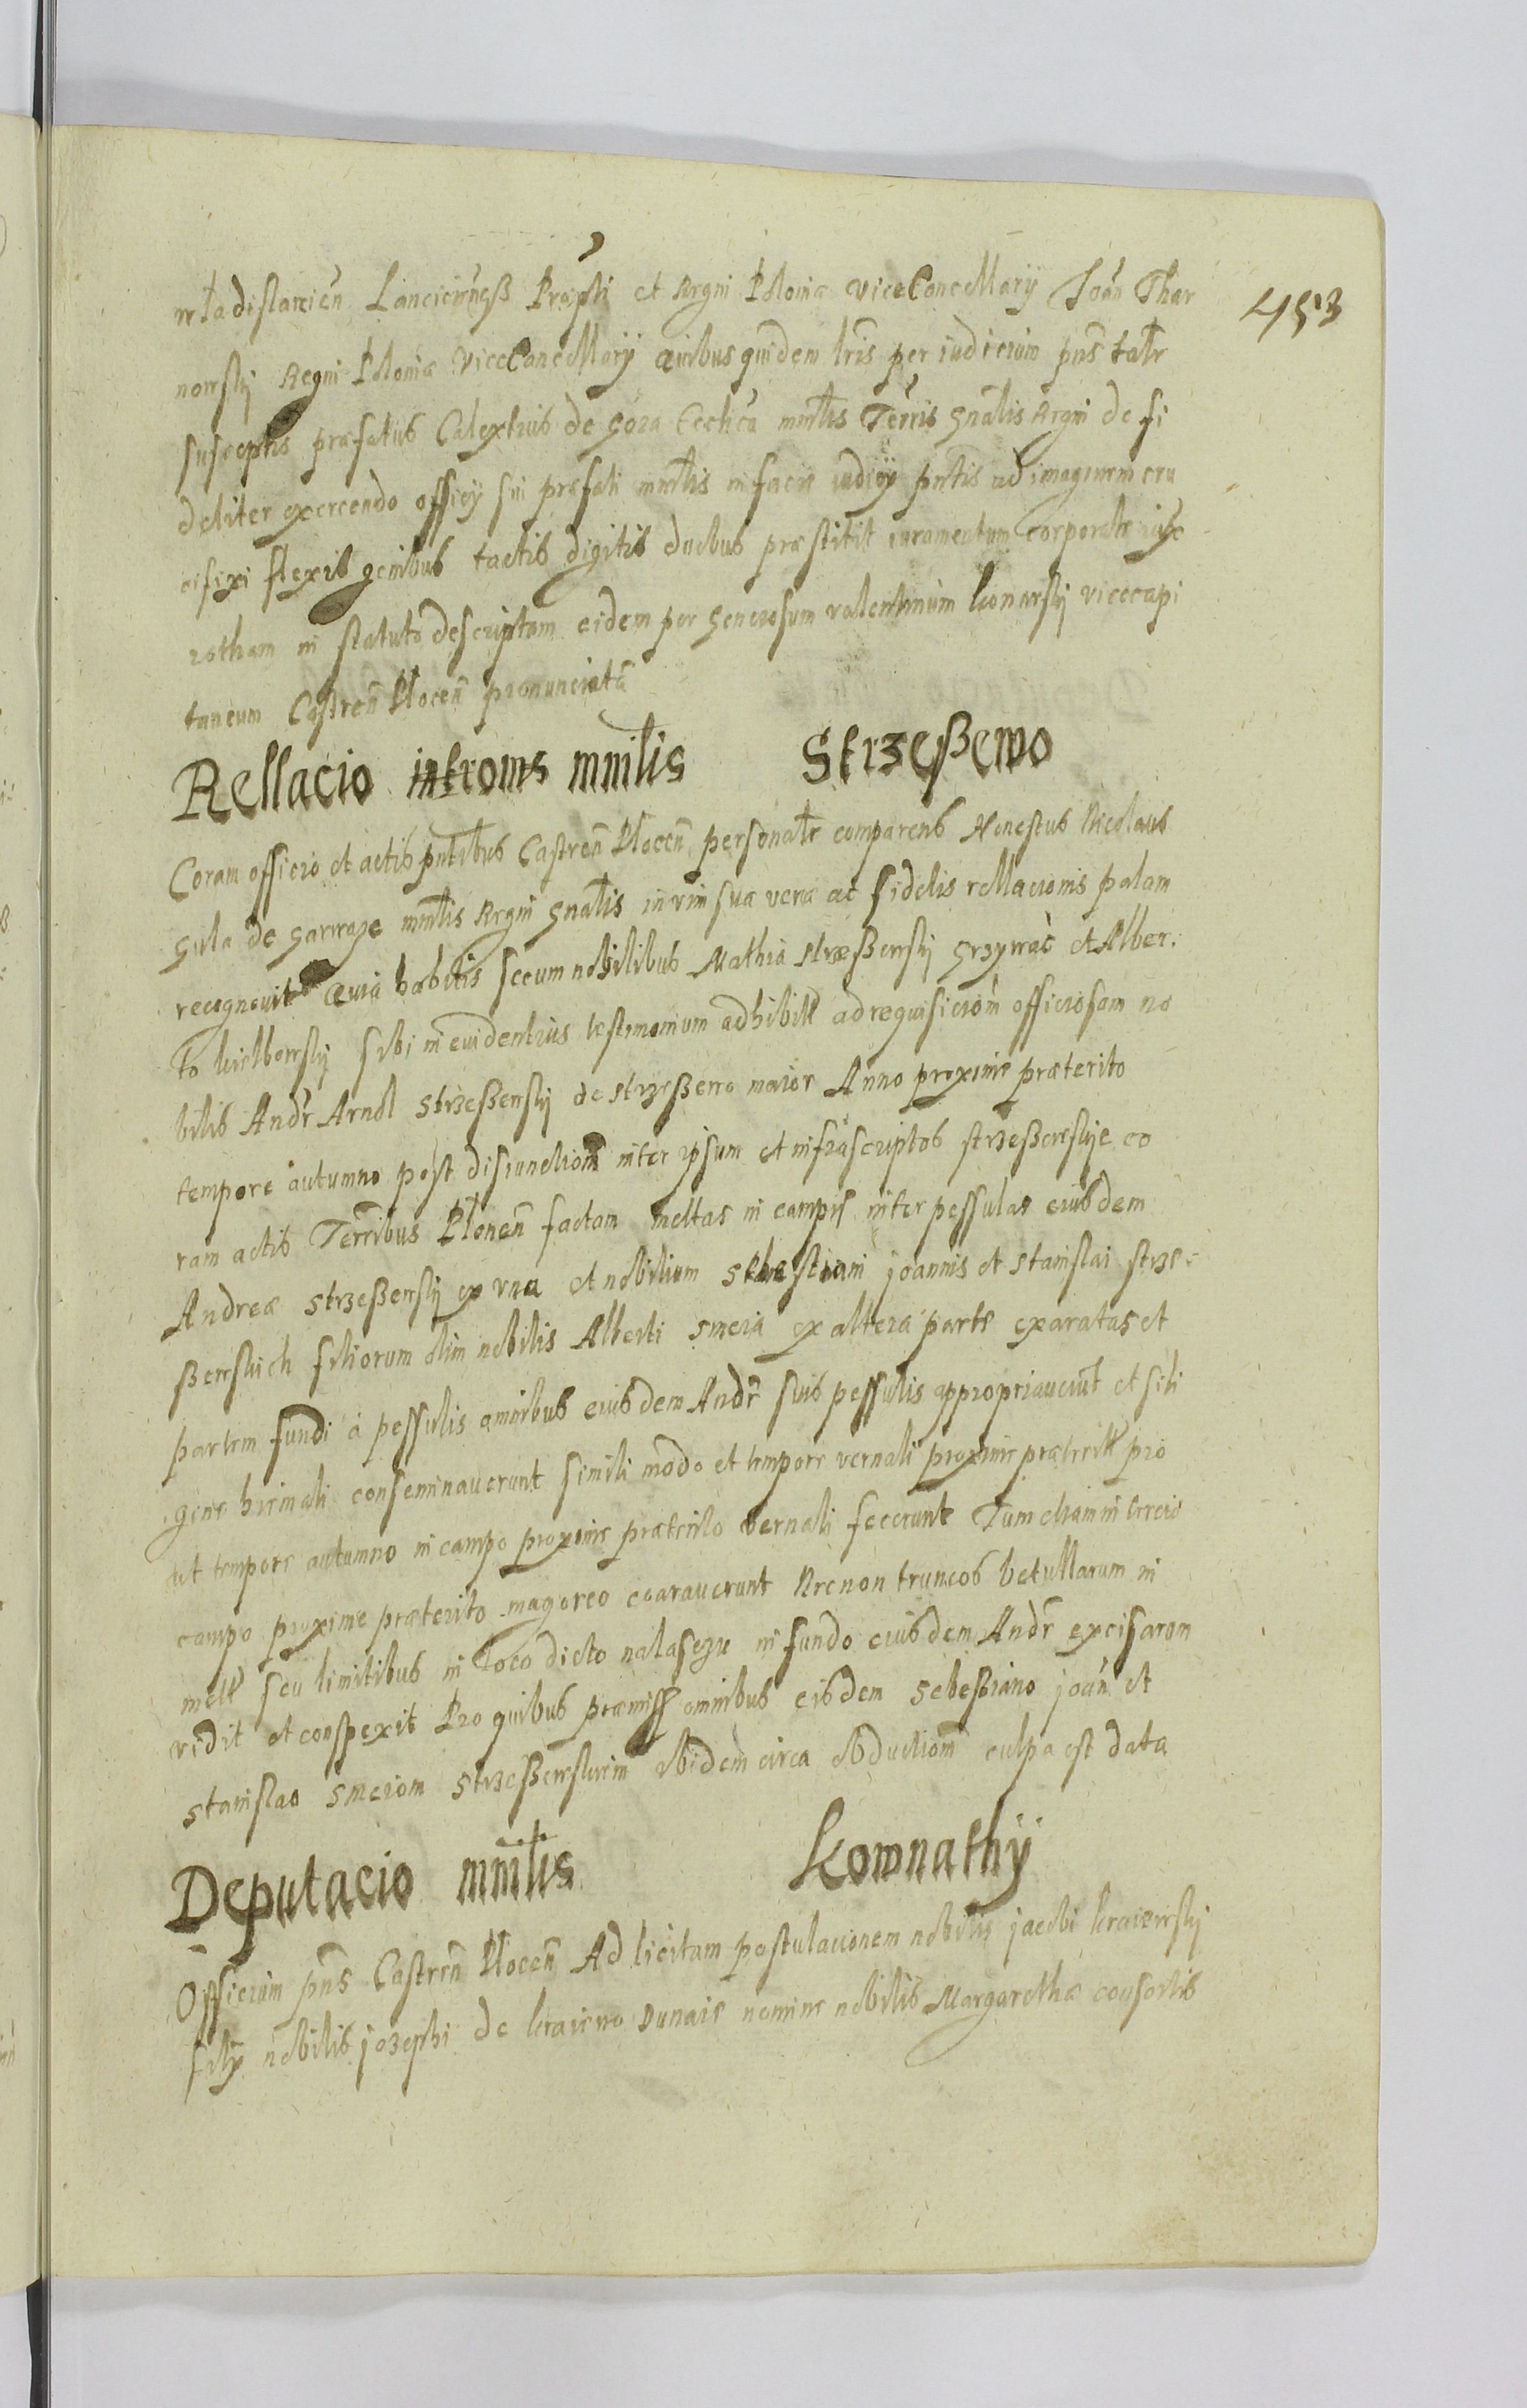 wladislavien Lancicien Præpti et Regni Poloniæ ViceCancellarij Joan Thar
453
nowsky Regni Poloniæ ViceCancellarij Quibus quidem lris per iudicium pns
susceptis præfatus Calextus de Gora mnrlis Terris Gnalis Regni de fi
deliter exercendo officij sui præfati mnrlis in facie iudicij pntis ad imaginem cru
cifixi flexis genibus tactis digitis duobus præstitit iuramentum corporale iuxe
rotham in statuto descriptam eidem per Generosum valentinum konarskij vicecapi
taneum Castren Plocen pronunciata
Rellacio introms mnilis Strzeßewo
Coram officio et actis pntibus Castren Plocen personalr comparens Honestus Nicolaus
Gula de mnrlis Regni Gnalis in vim suæ veræ ac fidelis rellacionis palam
recognovit Quia habitis secum nobilibus Mathia Strzeßewskij et Alber
to sibi in evidentius testimonium adhibitt ad requisiciom officiosam no
bilis Andr Strzeßewskij de Strzeßewo maior Anno proxime præterito
tempore autumno post disiunctiom inter ipsum et infrascriptos strzeßewskye co
ram actis Terribus factam mettas in campis inter pessulas eiusdem
Andreæ Strzeßewskij ex vna et nobilium Sebestiani joannis et Stanislai strze
ßewskich filiorum olim nobilis Alberti ex altera parte exaratas et
partem fundi á pessulis omnibus eiusdem Andr suis pessulis appropriaverut et sili
gine hiemali conseminaverunt simili modo et tempore vernali proxime præteritt pro
ut tempore autumno in campo proxime præterito vernali fecerunt Tum etiam in tercio
campo proxime præterito exaraverunt Necnon truncos betullarum in
mett seu limitibus in loco dicto in fundo eiusdem Andr excisarum
vidit et conspexit Pro quibus præmiss omnibus eisdem Sebestiano joan et
Stanislao ibidem circa obductiom culpa est data
Deputacio mnilis Kownathÿ
Officium pns Castren Plocen Ad licitam postulacionem nobilis jacobi
filij nobilis jozephi de nomine nobilis Margarethæ consortis